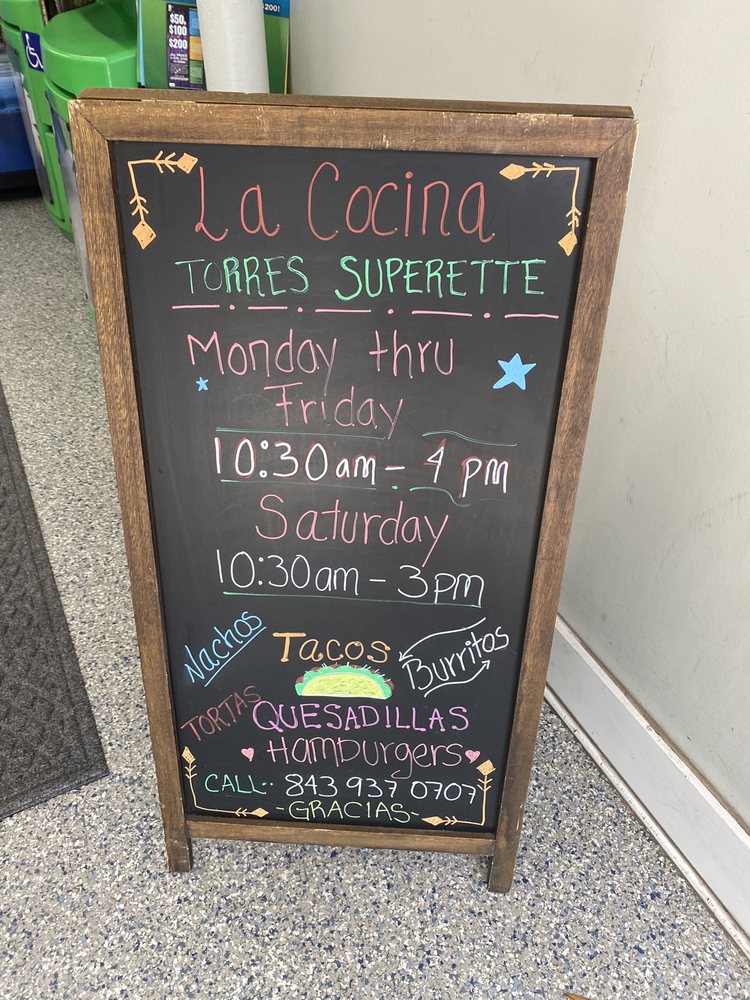 $200!
$50,
$100
$200
La Cocina
TORRES SUPERETTE
Monday thru
Friday
10:30am - 4 pm
Saturday
10:30am - 3pm
Nachos
Tacos
Burritos
TORTAS
QUESADILLAS
Hamburgers
CALL.. 843 937 0707
-GRACIAS-